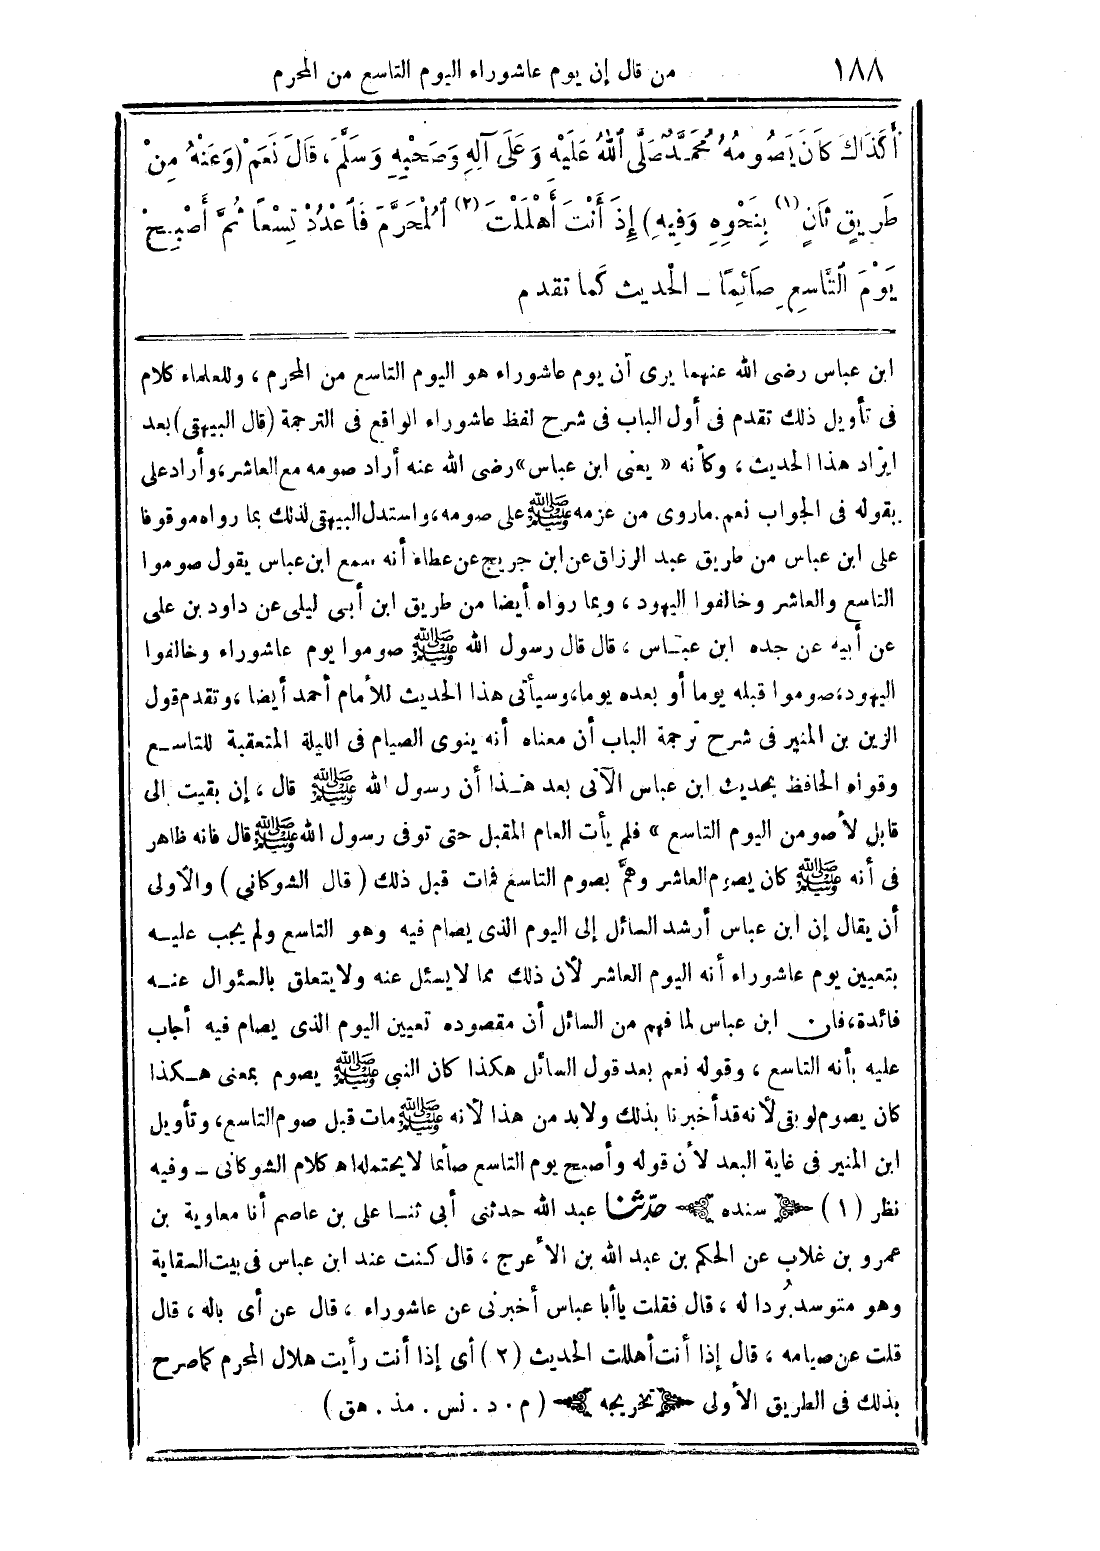 ١٨٨ من قال إن يوم عاشوراء اليوم التاسع من المحرم
أَكَذَاكَ كَانَ يَصُومُهُ مُحَمَّدٌ صَلَّى اللهُ عَلَيْهِ وَعَلَى آلِهِ وَصَحْبِهِ وَسَلَّمَ، قَالَ نَعَمْ (وَعَنْهُ مِنْ
طَرِيقٍ ثَانٍ (١) بِنَحْوِهِ وَفِيهِ) إِذَ أَنْتَ أَهْلَلْتَ (٢) الْمُحَرَّمَ فَاعْدُدْ تِسْعًا ثُمَّ أَصْبِحْ
يَوْمَ التَّاسِعِ صَائِمًا ــ الْحديث كَما تقدم
ابن عباس رضى الله عنهما يرى أن يوم عاشوراء هو اليوم التاسع من المحرم ، وللعلماء كلام
فى تأويل ذلك تقدم فى أول الباب فى شرح لفظ عاشوراء الواقع فى الترجمة (قال البيهقى) بعد
ايراد هذا الحديث ، وكأنه « يعنى ابن عباس» رضى الله عنه أراد صومه مع العاشر، وأراد على
بقوله فى الجواب نعم. ماروى من عزمه ﷺ على صومه، واستدل البيهقى لذلك بما رواه موقوفا
على ابن عباس من طريق عبد الرزاق عن ابن جريج عن عطاء أنه سمع ابن عباس يقول صوموا
التاسع والعاشر وخالفوا اليهود ، وبما رواه أيضا من طريق ابن أبي ليلى عن داود بن على
عن أبيه عن جده ابن عباس ، قال قال رسول الله ﷺ صوموا يوم عاشوراء وخالفوا
اليهود، صوموا قبله يوما أو بعده يوما، وسيأتى هذا الحديث للأمام أحمد أيضا ، وتقدم قول
الزين بن المنير فى شرح ترجمة الباب أن معناه أنه ينوى الصيام فى الليلة المتعقبة للتاسع
وقواه الحافظ بحديث ابن عباس الآتى بعد هذا أن رسول الله ﷺ قال ، إن بقيت الى
قابل لأصومن اليوم التاسع » فلم يأت العام المقبل حتى توفى رسول الله ﷺ قال فانه ظاهر
فى أنه ﷺ كان يصوم العاشر وهمَّ بصوم التاسع فمات قبل ذلك ( قال الشوكاني ) والأولى
أن يقال إن ابن عباس أرشد السائل إلى اليوم الذى يصام فيه وهو التاسع ولم يجب عليه
بتعيين يوم عاشوراء أنه اليوم العاشر لأن ذلك مما لا يسئل عنه ولا يتعلق بالسئوال عنه
فائدة، فان ابن عباس لما فهم من السائل أن مقصوده تعيين اليوم الذى يصام فيه أجاب
عليه بأنه التاسع ، وقوله نعم بعد قول السائل هكذا كان النبي ﷺ يصوم بمعنى هكذا
كان يصوم لو بقى لأنه قد أخبرنا بذلك ولابد من هذا لأنه ﷺ مات قبل صوم التاسع، وتأويل
ابن المنير فى غاية البعد لأن قوله وأصبح يوم التاسع صائما لا يحتمله اه كلام الشوكانى ــ وفيه
نظر (١) سنده حدّثنا عبد الله حدثنى أبي ثنا على بن عاصم أنا معاوية بن
عمرو بن غلاب عن الحكم بن عبد الله بن الأعرج ، قال كنت عند ابن عباس فى بيت السقاية
وهو متوسد بُردا له ، قال فقلت ياأبا عباس أخبرنى عن عاشوراء ، قال عن أى باله ، قال
قلت عن صيامه ، قال إذا أنت أهللت الحديث (٢) أى إذا أنت رأيت هلال المحرم كما صرح
بذلك فى الطريق الأولى تخريجه ( م . د . نس . مذ . هق )